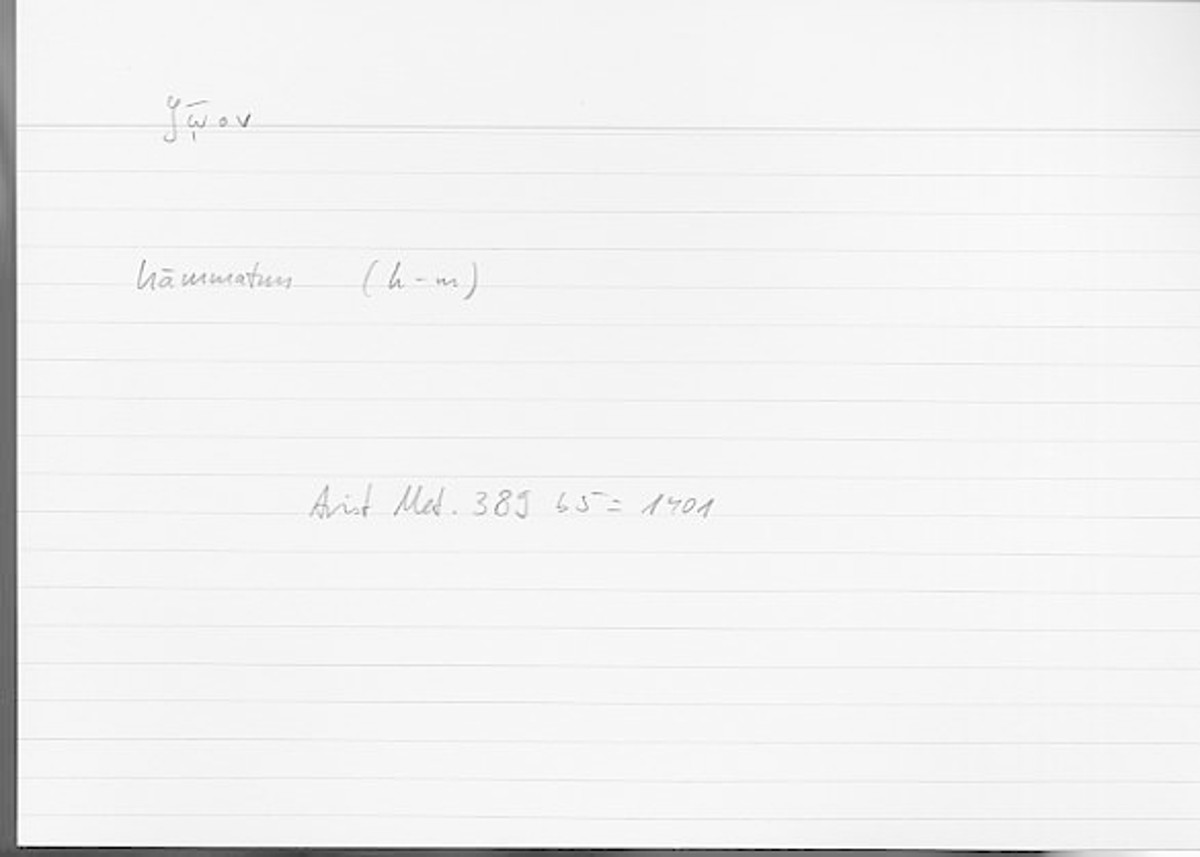 ζῷον
hāmmatun (h-m)
Arist Met. 389 b5 = 1401